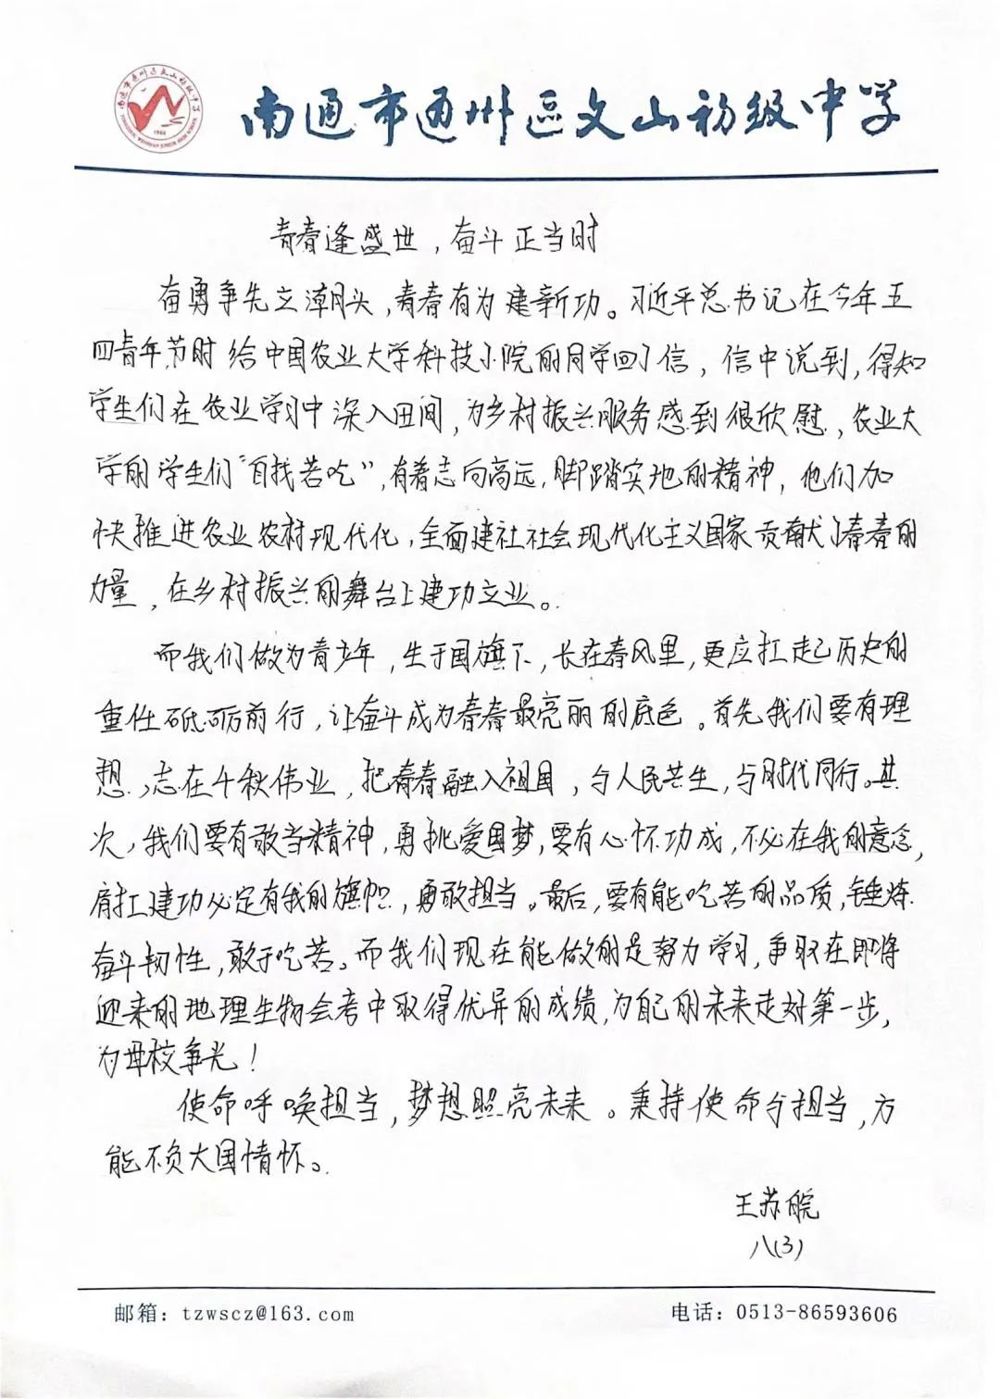 南通市通州区文山初级中学
青春逢盛世，奋斗正当时
奋勇争先立潮头，青春有为建新功。习近平总书记在今年五
四青年节时给中国农业大学科技小院的同学回了信，信中说到，得知
学生们在农业学习中深入田间，为乡村振兴服务感到很欣慰，农业大
学的学生们“自找苦吃”，有着志向高远，脚踏实地的精神，他们加
快推进农业农村现代化，全面建社社会现代化主义国家贡献了青春的
力量，在乡村振兴的舞台上建功立业。
而我们做为青少年，生于国旗下，长在春风里，更应扛起历史的
重任砥砺前行，让奋斗成为青春最亮丽的底色。首先我们要有理
想，志在千秋伟业，把青春融入祖国，与人民共生，与时代同行。其
次，我们要有敢当精神，勇挑爱国梦，要有心怀功成，不必在我的意念，
肩扛建功必定有我的旗帜，勇敢担当。最后，要有能吃苦的品质，锤炼
奋斗韧性，敢于吃苦。而我们现在能做的是努力学习，争取在即将
迎来的地理生物会考中取得优异的成绩，为自己的未来走好第一步，
为母校争光！
使命呼唤担当，梦想照亮未来。秉持使命与担当，方
能不负大国情怀。
王苏皖
八(3)
邮箱：tzwscz@163.com 电话：0513-86593606